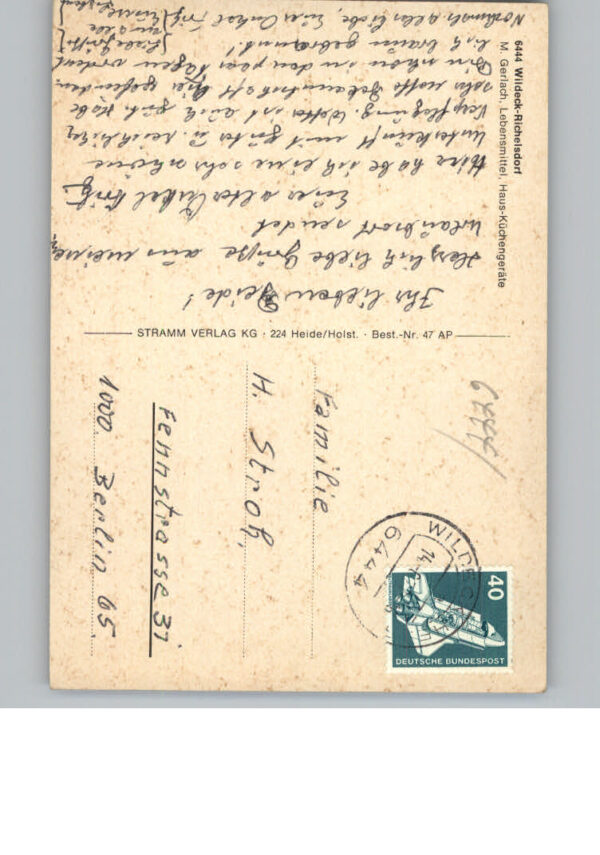 6444 Wildeck-Richelsdorf
M. Gerlach, Lebensmittel, Haus-Küchengeräte
Ihr lieben Beide!
Herzlich liebe Grüße aus meinem
Urlaubsort sendet
Euer alter Onkel Fritz.
Hier habe ich eine sehr schöne
Unterkunft mit guter u. reichlicher
Verpflegung. Wetter ist auch gut. Habe
sehr nette Bekanntschaft hier gefunden.
Bin schon in den paar Tagen ordent-
lich braun gebrannt!
Nochmals alles Liebe, Euer Onkel Fritz
STRAMM VERLAG KG · 224 Heide/Holst. · Best.-Nr. 47 AP
6444
Familie
H. Stroh,
Fennstrasse 31
1000 Berlin 65.
WILDECK
6444
40
DEUTSCHE BUNDESPOST